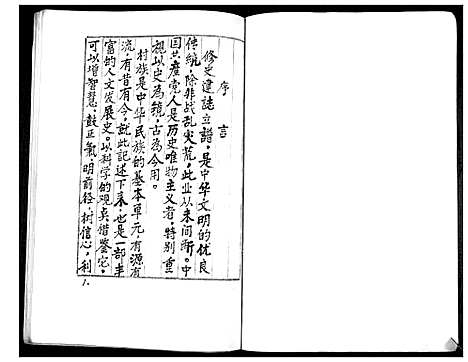 序言
修史建誌立譜，是中华文明的优良
传统，除非战乱灾荒，此业从未间断。中
国共産党人是历史唯物主义者，特别重
视以史为镜，古为今用。
村族是中华民族的基本单元，有源有
流，有昔有今，就此记述下来，也是一部丰
富的人文发展史。以科学的观点借鉴它，
可以增智慧，鼓正氣，明前径，树信心，利
1.